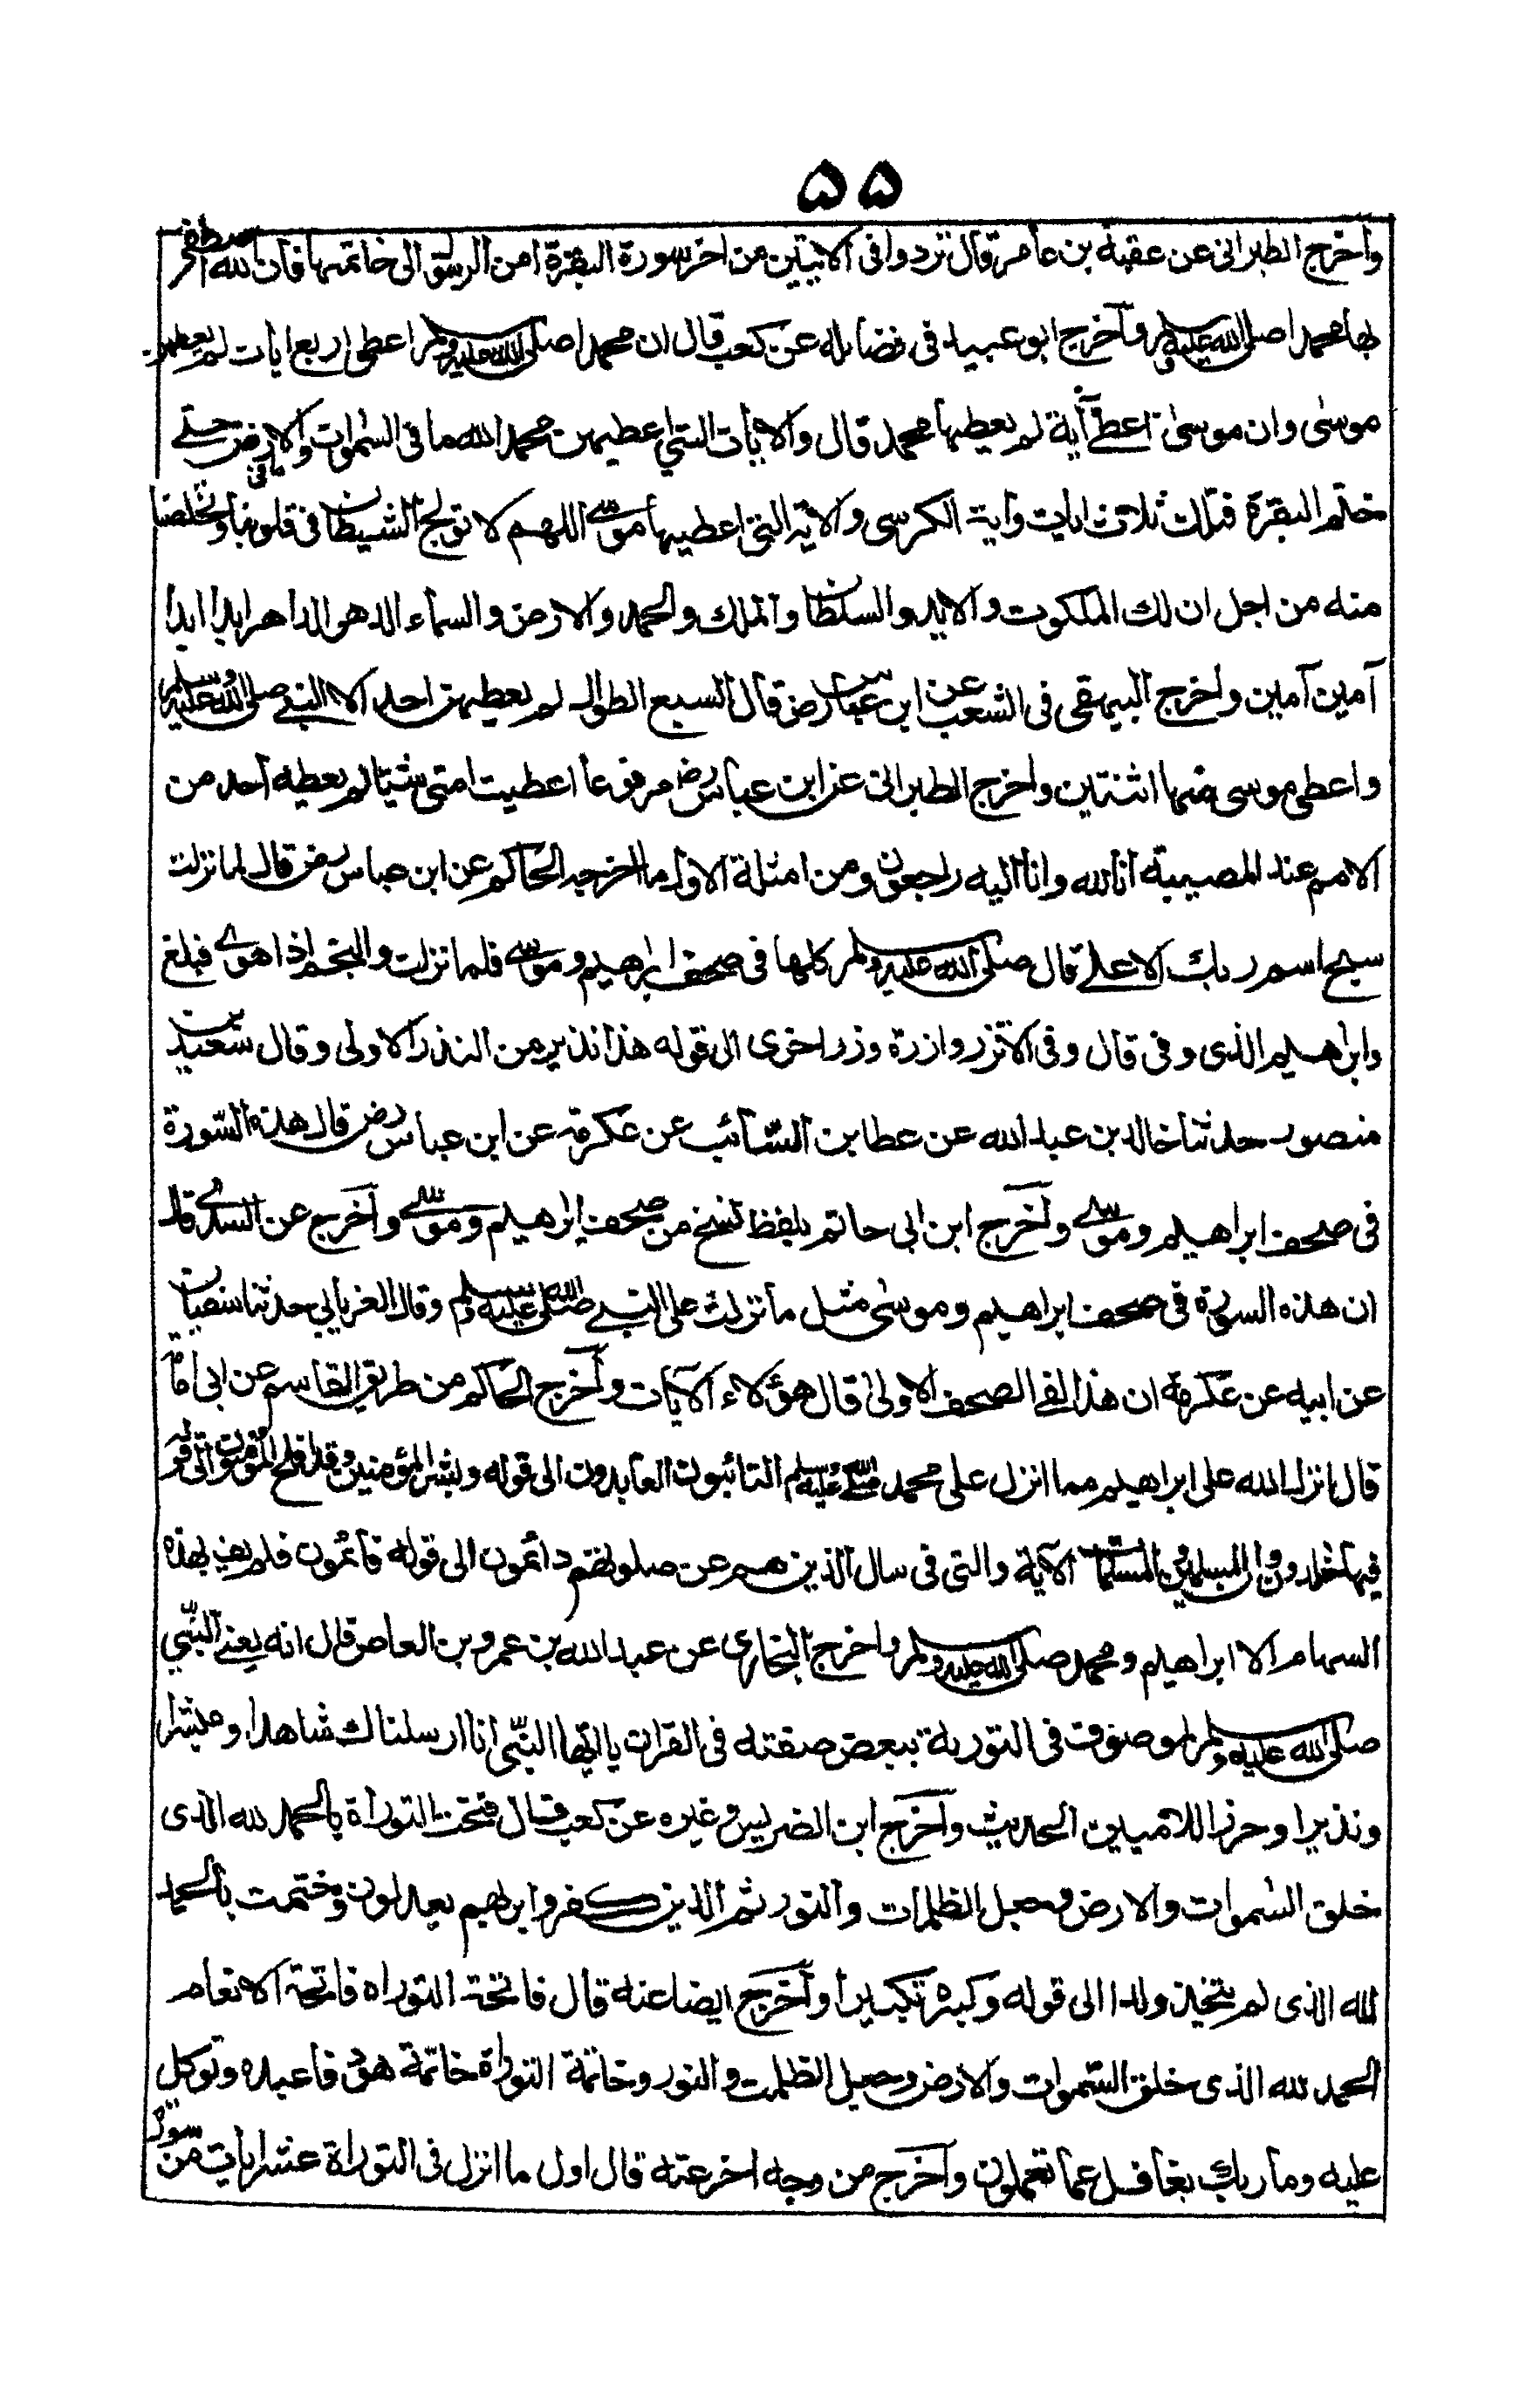 ۵۵
وأخرج الطبرانى عن عقبة بن عامر قال تزدوا فى الايتين من اخر سورة البقرة امن الرسول الى خاتمتها فان الله اصطفى
بها محمدا صلى الله عليه وسلم وأخرج ابو عبيد فى فضائله عن كعب قال ان محمدا صلى الله عليه وسلم اعطى اربع ايات لم يعطهن
موسٰى وان موسىٰ اعطى آية لم يعطها محمد قال والايات التي اعطيهن محمد الله ما فى السٰموات وما فى الارض حتے
ختم البقرة فتلك ثلاث ايات وأية الكرسى والاية التى اعطيها موسى اللهم لا تولج الشيطان فى قلوبنا وخلصنا
منه من اجل ان لك الملكوت والايد والسلطان والملك والحمد والارض والسماء الدهر الداهر ابدا ابدا
آمين آمين وأخرج البيهقى فى الشعب عن ابن عباس رض قال السبع الطوال لم يعطيهن احد الا النبى صلى الله عليه وسلم
واعطى موسى منها اثنتين وأخرج الطبرانى عن ابن عباس رض مرفوعا اعطيت امتى شيئا لم يعطه أحد من
الامم عند المصيبة انا لله وانا اليه راجعون ومن امثلة الاول ما اخرجه الحاكم عن ابن عباس رض قال لما نزلت
سبح اسم ربك الاعلے قال صلى الله عليه وسلم كلها فى صحف ابراهيم وموسى فلما نزلت والنجم اذا هوى فبلغ
وابراهيم الذى وفى قال وفى الا تزر وازرة وزر اخرى الى قوله هذا نذير من النذر الاولى وقال سعيد بن
منصور حدثنا خالد بن عبد الله عن عطا بن السّائب عن عكرمة عن ابن عباس رض قال هذه السّورة
فى صحف ابراهيم وموسى وأخرج ابن ابى حاتم بلفظ نسخ من صحف ابراهيم وموسى وأخرج عن السدى قال
ان هذه السورة فى صحف ابراهيم وموسٰى مثل ما نزلت على النبے صلى الله عليه وسلم وقال الفريابي حدثنا سفيان
عن ابيه عن عكرمة ان هذا لفى الصحف الاولىٰ قال هؤلاء الآيات وأخرج الحاكم من طريق القاسم عن ابى أمامة
قال انزل الله على ابراهيم مما انزل على محمد صلى الله عليه وسلم التائبون العابدون الى قوله وبشر المؤمنين وقد افلح المؤمنون الى قوله
فيها خلدون وان المسلمين والمسلمات الآية والتى فى سال الذين هم عن صلوتهم دائمون الى قوله قائمون فلم يف بهذه
السهام الا ابراهيم ومحمد صلى الله عليه وسلم واخرج البخارى عن عبد الله بن عمرو بن العاص قال انه يعنے النّبي
صلى الله عليه وسلم لموصوف فى التورية ببعض صفته فى القران يا ايّها النبّى انا ارسلناك شاهدا ومبشرا
ونذيرا وحرزا للاميين الحديث وأخرج ابن الضريس وغيره عن كعب قال فتحت التوراة بالحمد لله الذى
خلق السّموات والارض وجعل الظلمات والنور ثم الذين كفروا بربهم يعدلون وختمت بالحمد
لله الذى لم يتخذ ولدا الى قوله وكبره تكبيرا وأخرج ايضا عنه قال فاتحة التوراه فاتحة الانعام
الحمد لله الذى خلق السّموات والارض وجعل الظلمت والنور وخاتمة التوراة خاتمة هود فاعبده وتوكل
عليه وما ربك بغافل عما تعملون وأخرج من وجه اخر عنه قال اول ما انزل فى التوراة عشر ايات من سورة